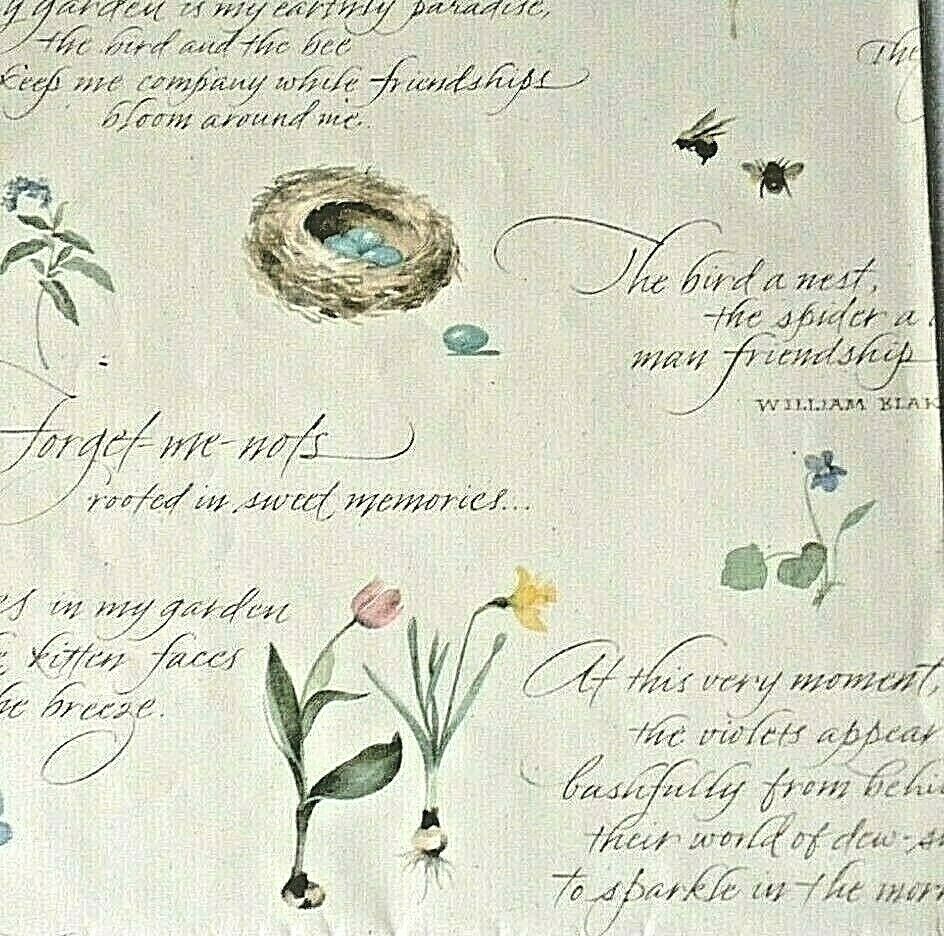 garden is my earthly paradise,
the bird and the bee
keep me company while friendships
bloom around me.
The
The bird a nest,
the spider a
man friendship
WILLIAM BLAK
forget-me-nots
rooted in sweet memories...
in my garden
kitten faces
breeze.
At this very moment,
the violets appear
bashfully from behi
their world of dew-s
to sparkle in the mor